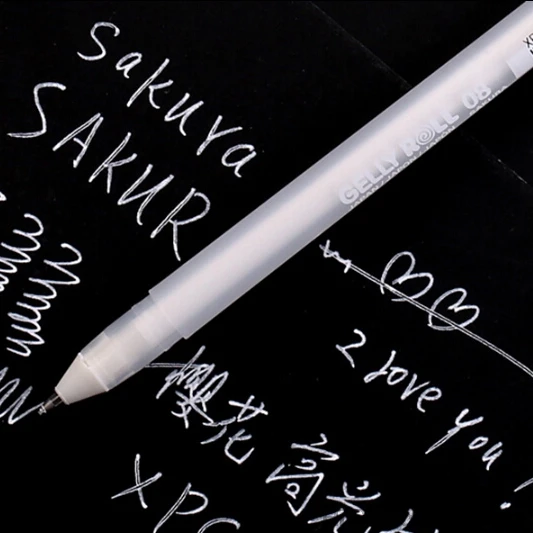 Sakura
SAKUR
GELLY ROLL 08
I love you!
樱花 高光
XPG